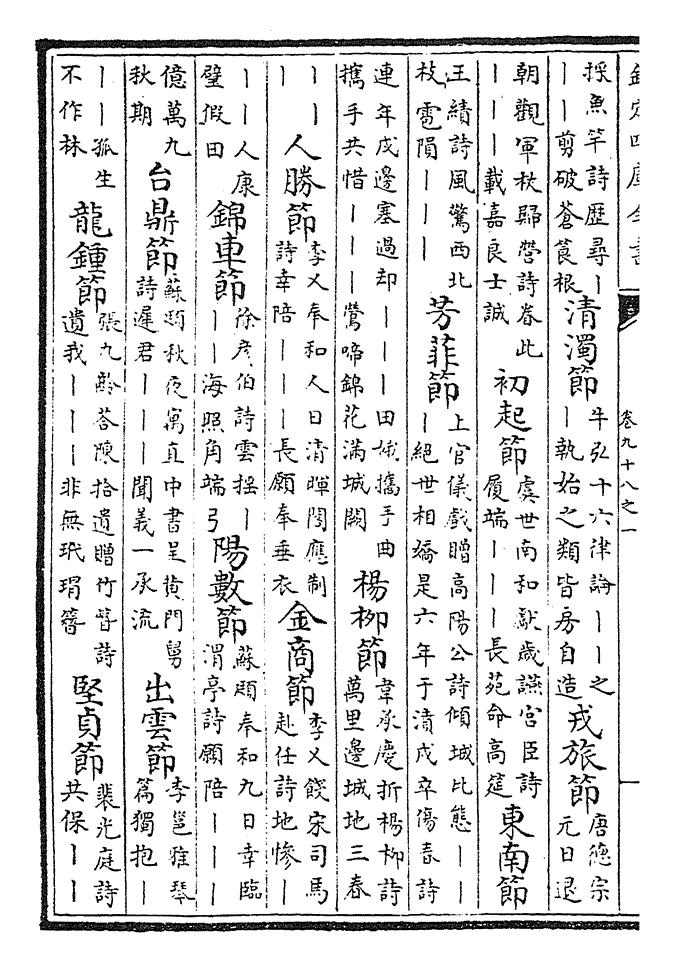 欽定四庫全書
卷九十八之一
採魚竿詩歷尋丨
丨丨剪破蒼筤根
清濁節
牛弘十六律論丨丨之
丨執始之類皆房自造
戎旅節
唐德宗
元日退
朝觀軍杖歸營詩眷此
丨丨丨載嘉良士誠
初起節
虞世南和獻歲讌宮臣詩
履端丨丨丨長苑命高筵
東南節
王績詩風驚西北
枝雹隕丨丨丨
芳菲節
上官儀戲贈高陽公詩傾城比態丨丨
丨絕世相嬌是六年于漬戍卒傷春詩
連年戍邊塞過却丨丨丨田娥攜手曲
攜手共惜丨丨丨鶯啼錦花滿城闕
楊柳節
韋承慶折楊柳詩
萬里邊城地三春
丨丨
丨
人勝節
李乂奉和人日清暉閣應制
詩幸陪丨丨丨長願奉垂衣
金商節
李乂餞宋司馬
赴任詩地慘丨
丨丨人康
璧假田
錦車節
徐彥伯詩雲搖丨
丨丨海照角端弓
陽數節
蘇頲奉和九日幸臨
渭亭詩願陪丨丨丨
億萬九
秋期
台鼎節
蘇頲秋夜寓直中書呈黃門舅
詩遲君丨丨丨聞義一承流
出雲節
李邕雅琴
篇獨抱丨
丨丨孤生
不作林
龍鍾節
張九齡答陳拾遺贈竹簪詩
遺我丨丨丨非無玳瑁簪
堅貞節
裴光庭詩
共保丨丨